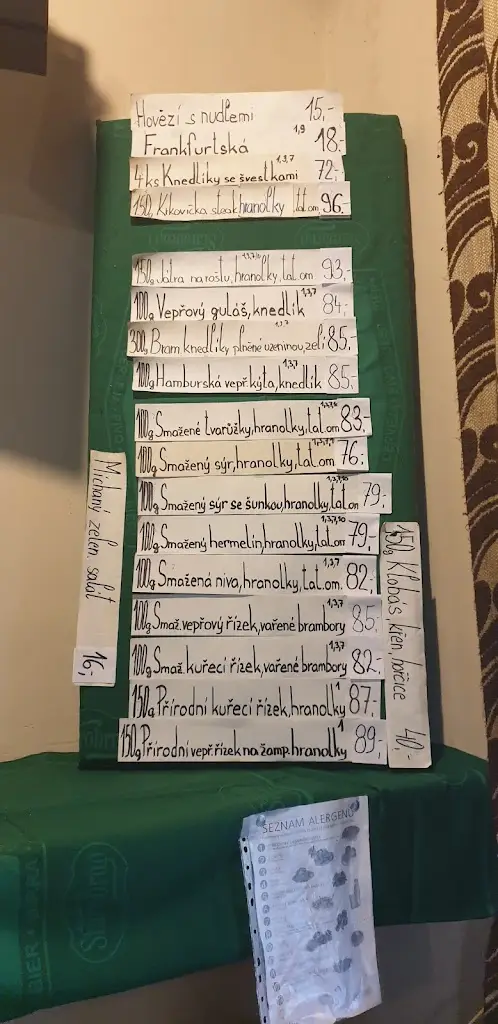 Hovězí s nudlemi 15,-
Frankfurtská 1,9 18.-
4ks Knedlíky se švestkami 1,3,7 72,-
150g Krkovička steak hranolky tat.om 96.-
150g Játra na roštu, hranolky, tat. om 93,-
100g Vepřový guláš, knedlík 1,3,7 84,-
300g Bram. knedlíky plněné uzeninou, zelí 85.-
100g Hamburská vepř. kýta, knedlík 1,3,7 85.-
100g Smažené tvarůžky, hranolky, tat.om 83.-
100g Smažený sýr, hranolky, tat.om 76.-
100g Smažený sýr se šunkou, hranolky, tat.om 1,3,7,10 79,-
100g Smažený hermelín, hranolky, tat.om 1,3,7,10 79,-
100g Smažená niva, hranolky, tat.om. 1,3,7 82,-
100g Smaž. vepřový řízek, vařené brambory 1,3,7 85.-
100g Smaž. kuřecí řízek, vařené brambory 1,3,7 82.-
150g Přírodní kuřecí řízek, hranolky 1 87,-
150g Přírodní vepř. řízek na žamp. hranolky 1 89,-
Míchaný zelen. salát 16,-
150g Klobás, křen, hořčice 40,-
SEZNAM ALERGENŮ